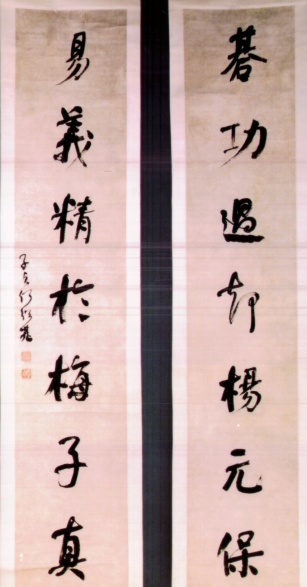 碁功過却楊元保
易義精於梅子真
子貞何紹基